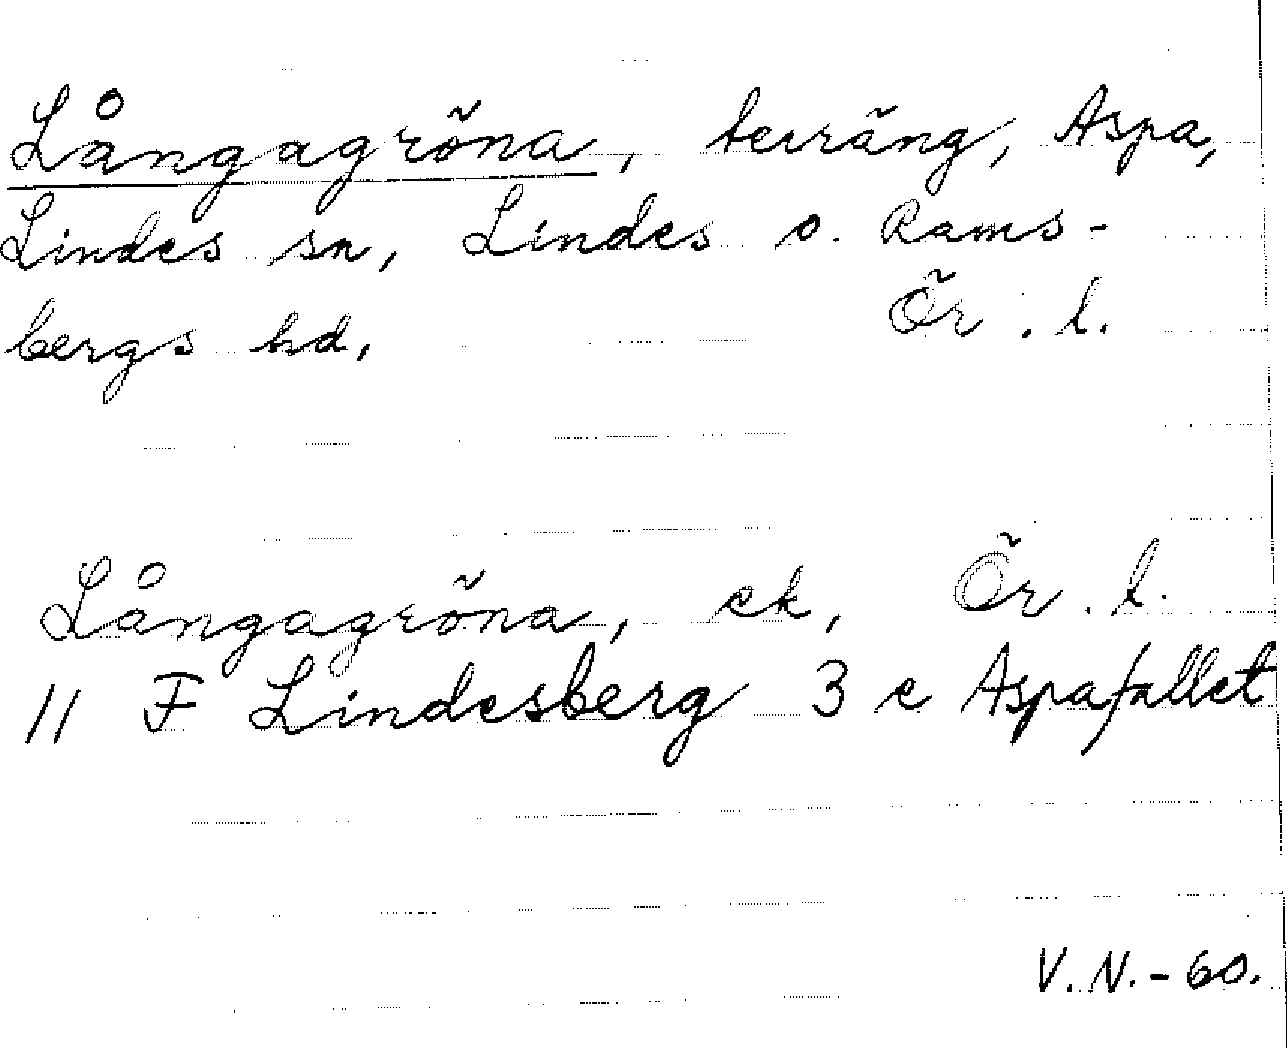 Långagröna, terräng, Aspa,
Lindes sn, Lindes o. Rams-
bergs hd, Ör. l.
Långagröna, ek, Ör. l.
11 F Lindesberg 3 e Aspafallet
V. N. - 60.